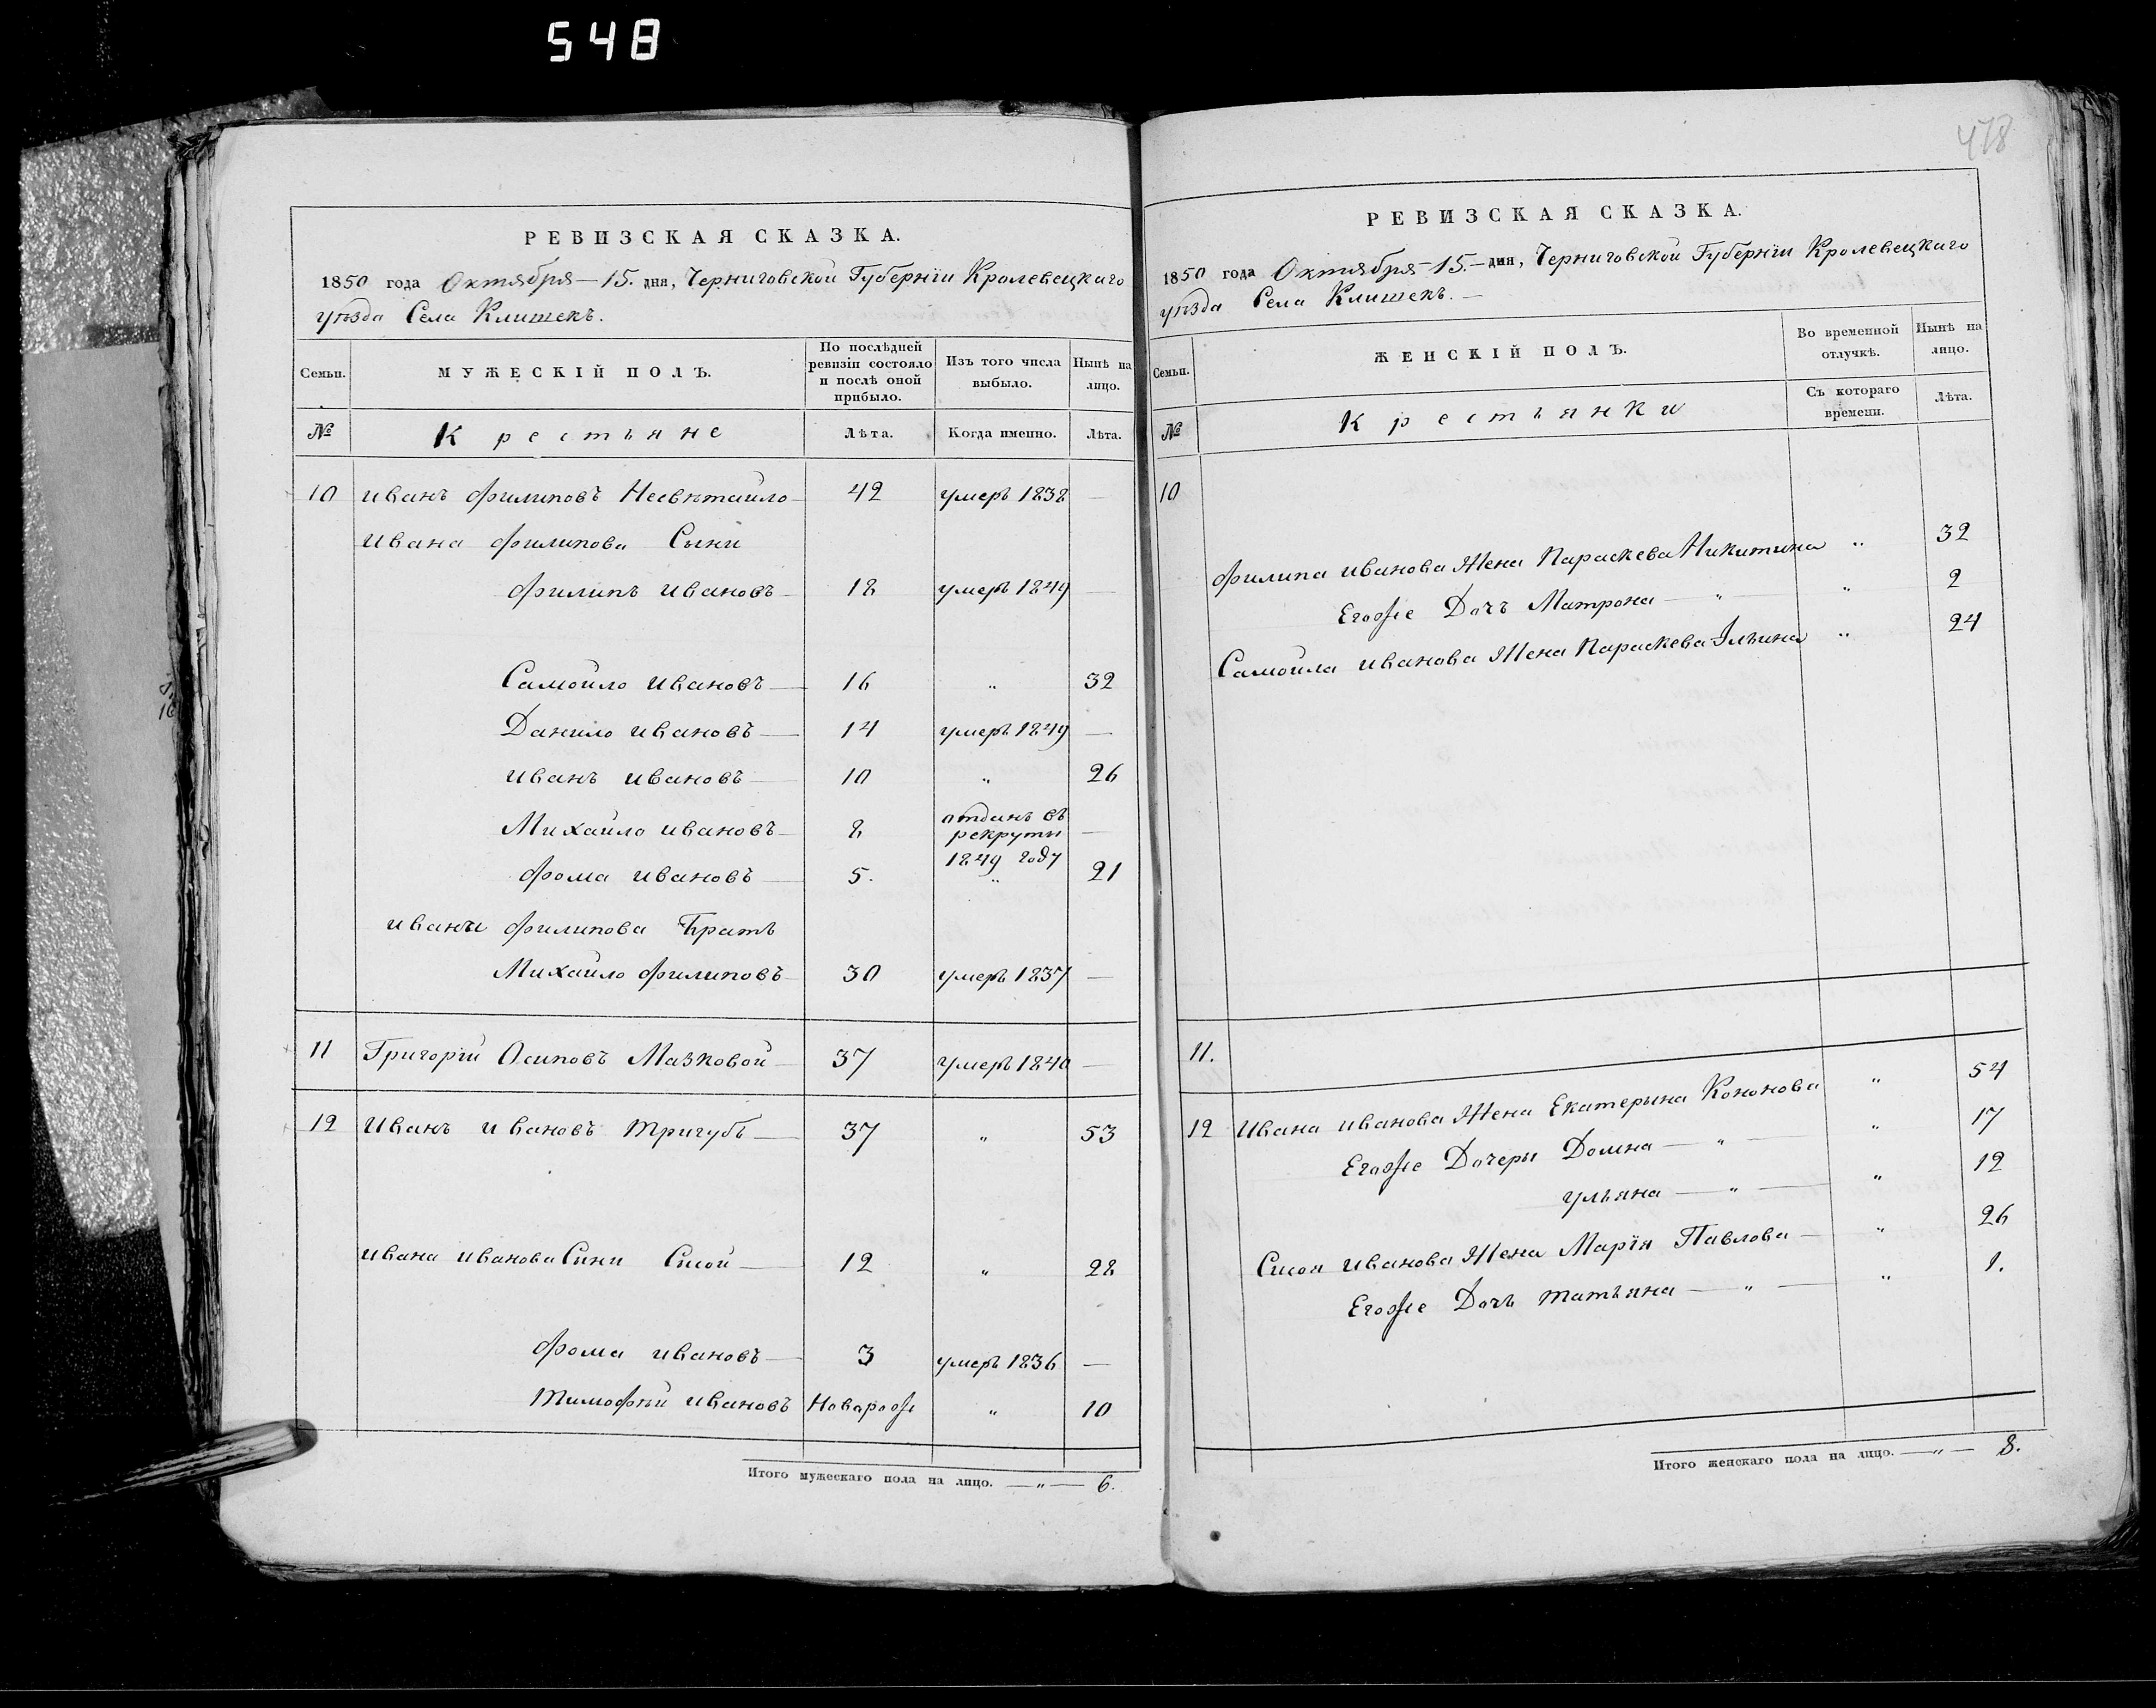 548
РЕВИЗСКАЯ СКАЗКА.
1850 года Октября — 15. дня, Черниговской Губернїи Кролевецкаго
уѣзда Села Клишекъ.
Семьи. МУЖЕСКІЙ ПОЛЪ. По послѣдней ревизіи состояло и послѣ оной прибыло. Изъ того числа выбыло. Нынѣ на лицо.
№ Крестьяне Лѣта. Когда именно. Лѣта.
10 Иванъ Филиповъ Несвѣтайло 42 умеръ 1838 —
Ивана Филипова Сыни
Филипъ Ивановъ 18 умеръ 1849 —
Самойло Ивановъ — 16 „ 32
Данило Ивановъ — 14 умеръ 1849 —
Иванъ Ивановъ — 10 „ 26
Михайло Ивановъ 8 отданъ въ рекруты 1849 году —
Фома Ивановъ — 5. „ 21
Ивана Филипова Братъ
Михайло Филиповъ 30 умеръ 1837 —
11 Григорій Осиповъ Мазковой 37 умеръ 1840 —
12 Иванъ Ивановъ Тригубъ — 37 „ 53
Ивана Иванова Сини Сисой — 12 „ 28
Фома Ивановъ — 3 умеръ 1836 —
Тимофѣй ИвановъНоворож „ 10
Итого мужескаго пола на лицо. — „ — 6.
478
РЕВИЗСКАЯ СКАЗКА.
1850 года Октября — 15. — дня, Черниговской Губернїи Кролевецкаго
уѣзда Села Клишекъ. —
Семьи. ЖЕНСКІЙ ПОЛЪ. Во временной отлучкѣ. Нынѣ на лицо.
№ Крестьянки Съ котораго времени. Лѣта.
10
Филипа Иванова Жена Параскева Никитина „ 32
Егоже Дочъ Матрона — „ „ 2
Самойла Иванова Жена Параскева Ільина „ 24
11.
12 Ивана Иванова Жена Екатерына Кононова „ 54
Егоже Дочеры Домна — „ — „ 17
Ульяна — „ — „ 12
Сисоя Иванова Жена Марія Павлова — „ 26
Егоже Дочъ Татьяна — „ — „ 1.
Итого женскаго пола на лицо. — „ — 8.